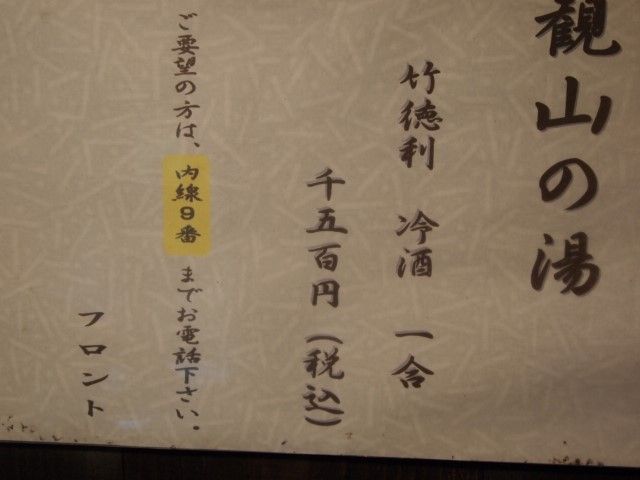 観山の湯
竹徳利 冷酒 一合
千五百円(税込)
ご要望の方は、内線9番 までお電話下さい。
フロント